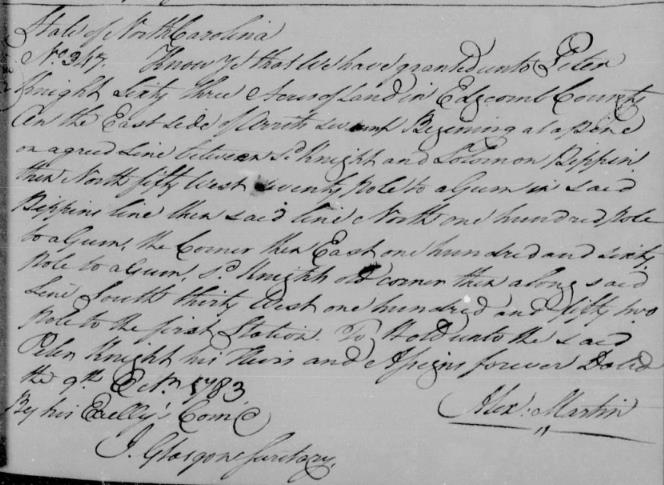 State of North Carolina
No. 347. Know Ye that We have granted unto Peter
Knight Sixty three Acres of Land in Edgcomb County
On the East side of swamp Begening at a pine
on agreed line between Sd. Knight and Solomon Peppin
then North fifty West seventy Pole to a Gum in said
Peppins line then said line North one hundred Pole
to a Gum, the Corner then East one hundred and sixty
Pole to a Gum, Sd. Knights old corner then along said
line South thirty West one hundred and fifty two
Pole to the first Station. To Hold unto the said
Peter Knight his Heirs and Assigns forever Dated
the 9th 1783
By his Excelly's Com
Alex: Martin
J. Glasgow Secretary,